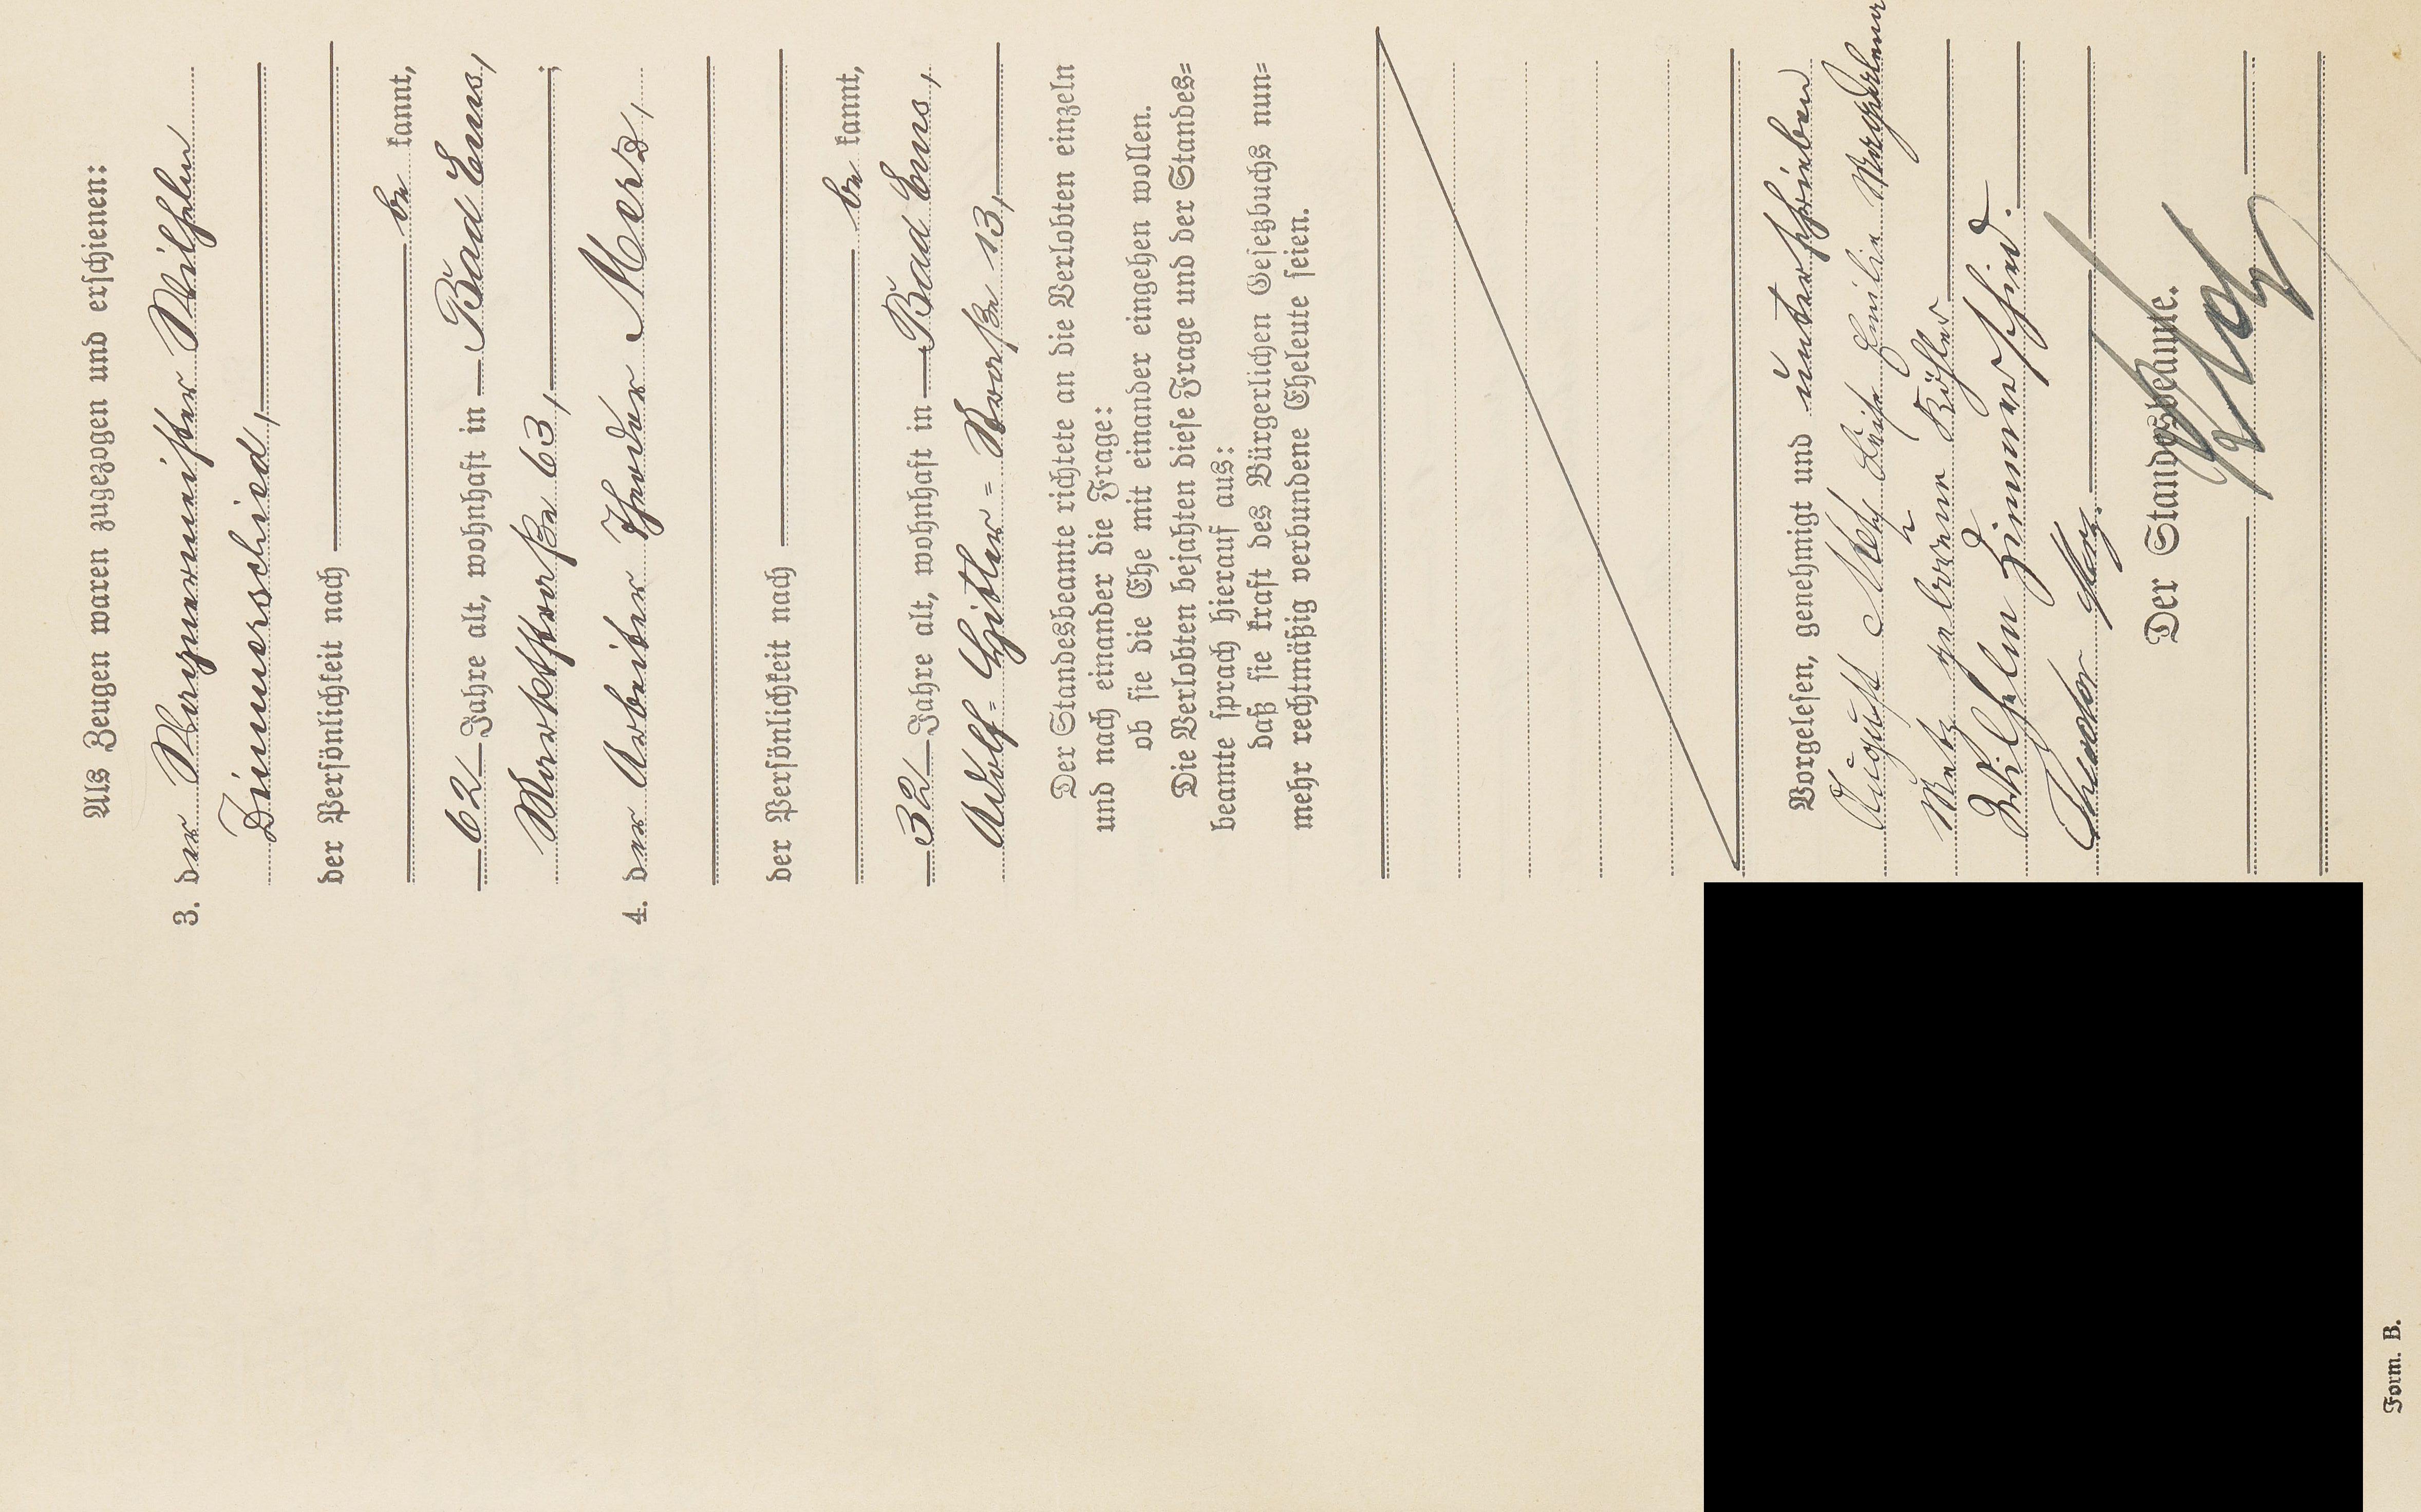 Als Zeugen waren zugezogen und erschienen:
3. der Wagnermeister Wilhelm
Dimmerschied,
der Persönlichkeit nach
be kannt,
62 Jahre alt, wohnhaft in Bad Ems,
Marktstraße 63,
;
4. der Arbeiter Theodor Merz,
der Persönlichkeit nach
be kannt,
32 Jahre alt, wohnhaft in Bad Ems,
Adolf-Hitler-Straße 13,
Der Standesbeamte richtete an die Verlobten einzeln
und nach einander die Frage:
ob sie die Ehe mit einander eingehen wollen.
Die Verlobten bejahten diese Frage und der Standes=
beamte sprach hierauf aus:
daß sie kraft des Bürgerlichen Gesetzbuchs nun=
mehr rechtmäßig verbundene Eheleute seien.
Vorgelesen, genehmigt und unterschrieben
August Metz Luise Emilie
Metz geborene Köhler
Wilhelm Dimmerschied.
Theodor Merz.
Der Standesbeamte.
Form. B.